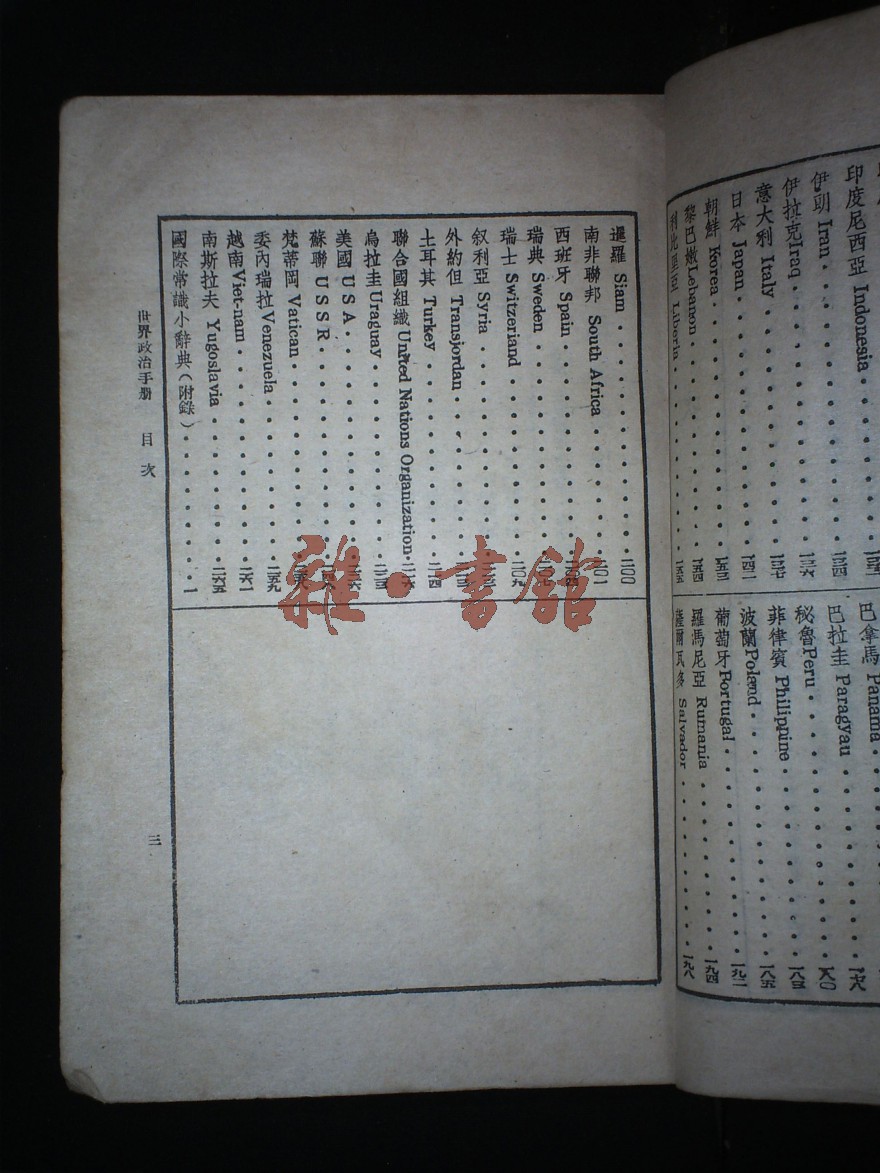 印度尼西亞 Indonesia
伊朗 Iran 一三四
伊拉克 Iraq 一三六
意大利 Italy 一三七
日本 Japan 一四二
朝鮮 Korea 一五三
黎巴嫩 Lebanon 一五四
利比里亞 Liberia 一五五
巴拿馬 Panama
巴拉圭 Paragyau 一七八
秘魯 Peru 一八〇
菲律賓 Philippine 一八三
波蘭 Poland 一八五
葡萄牙 Portugal 一九二
羅馬尼亞 Rumania 一九四
薩爾瓦多 Salvador 一九八
暹羅 Siam 二〇〇
南非聯邦 South Africa 二〇一
西班牙 Spain 二〇四
瑞典 Sweden 二〇七
瑞士 Switzeriand 二〇九
叙利亞 Syria
外約但 Transjordan
土耳其 Turkey 二一四
聯合國組織 United Nations Organization 二一六
烏拉圭 Uraguay
美國 USA 二二六
蘇聯 USSR
梵蒂岡 Vatican
委內瑞拉 Venezuela 二五九
越南 Viet-nam 二六一
南斯拉夫 Yugoslavia 二六五
國際常識小辭典（附錄） 一
世界政治手册 目次
三
雜·書館